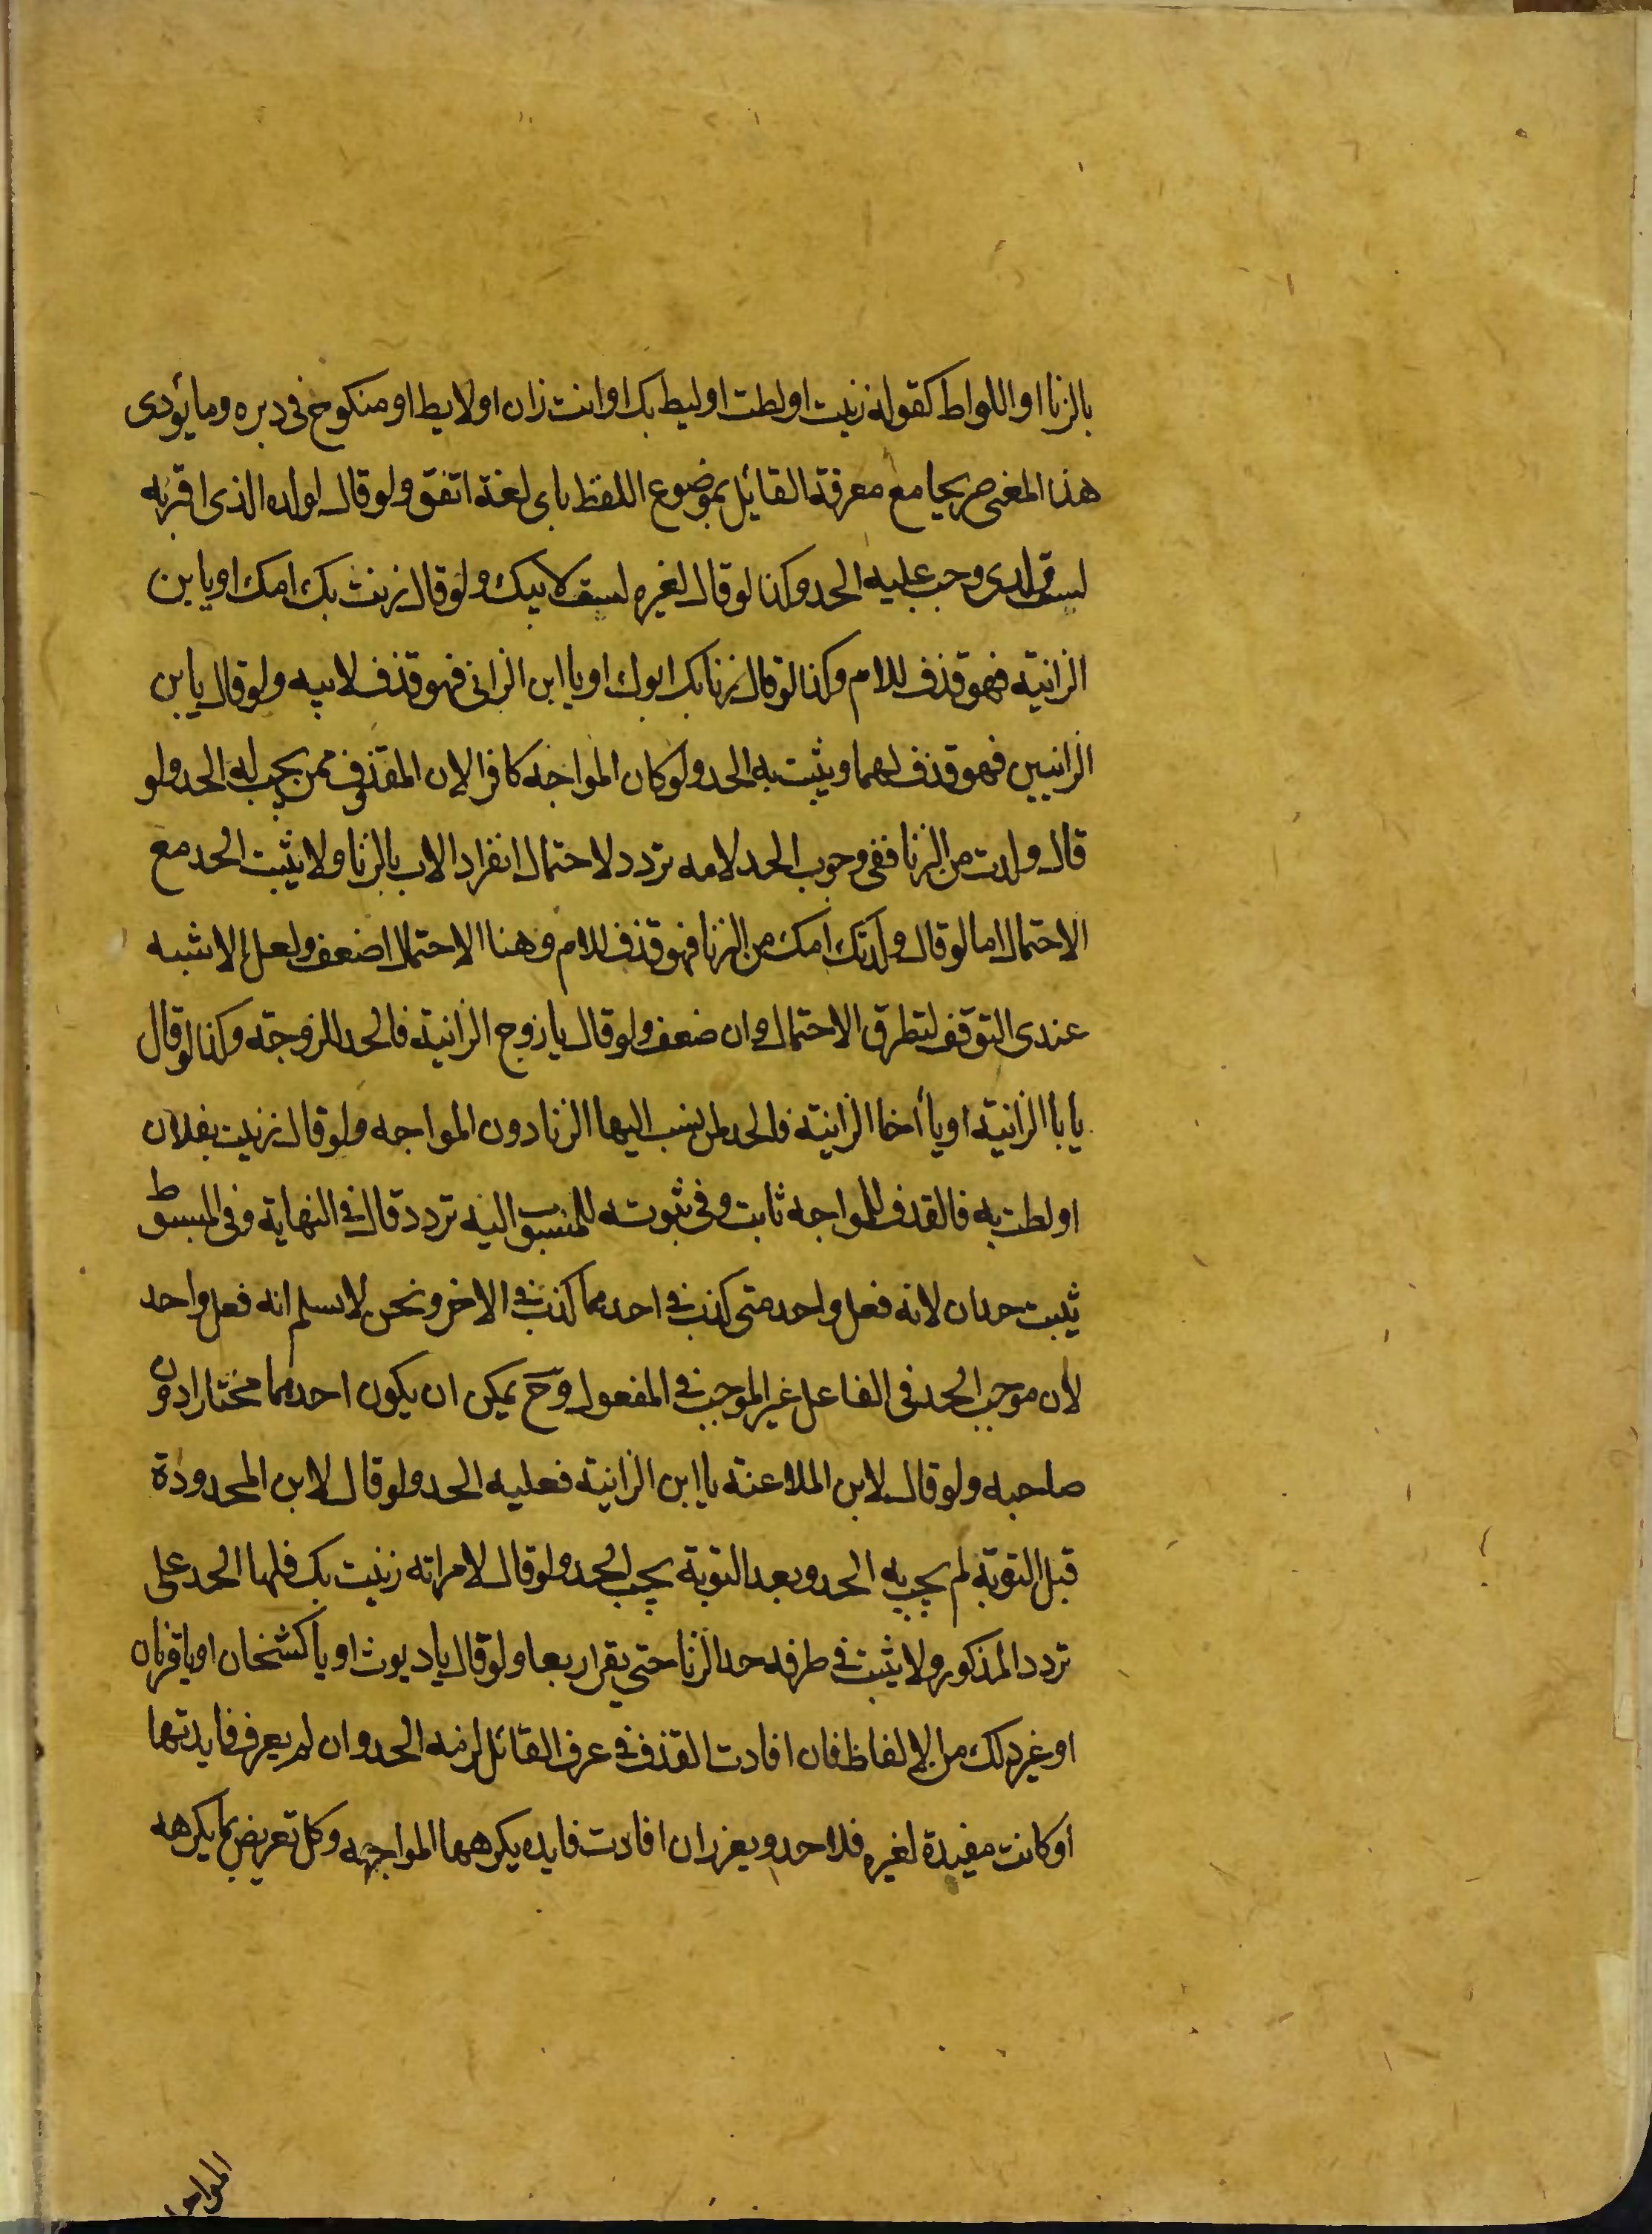 بالزنا او اللواط كقوله زنيت او لطت او ليط بك او انت زان او لايط او منكوح فى دبره وما يؤدى
هذا المعنى صريحا مع معرفة القائل بموضوع اللفظ باى لغة اتفق ولو قال لولده الذى اقر به
لست ولدى وجب عليه الحد وكذا لو قال لغيره لست لابيك ولو قال زنت بك امك او يابن
الزانية فهو قذف للام وكذا لو قال زنا بك ابوك او يا ابن الزانى فهو قذف لابيه ولو قال يابن
الزانيين فهو قذف لهما ويثبت به الحد ولو كان المواجه كافرا لان المقذوف ممن يجب له الحد ولو
قال ولدت من الزنا ففى وجوب الحد لامه تردد لاحتمال انفراد الاب بالزنا ولا يثبت الحد مع
الاحتمال اما لو قال ولدتك امك من الزنا فهو قذف للام وهنا الاحتمال اضعف ولعل الاشبه
عندى التوقف لتطرق الاحتمال وان ضعف ولو قال يا زوج الزانية فالحد للزوجة وكذا لو قال
يا با الزانية او يا أخا الزانية فالحد لمن نسب اليها الزنا دون المواجه ولو قال زنيت بفلان
او لطت به فالقذف للمواجه ثابت وفى ثبوته للمنسوب اليه تردد قال فى النهاية وفى المبسوط
يثبت حدان لانه فعل واحد متى كذب فى احدهما كذب فى الاخر ونحن لا نسلم انه فعل واحد
لأن موجب الحد فى الفاعل غير الموجب فى المفعول وح يمكن ان يكون احدهما مختارا دون
صاحبه ولو قال لابن الملاعنة يا ابن الزانية فعليه الحد ولو قال لابن المحدودة
قبل التوبة لم يجب به الحد وبعد التوبة يجب الحد ولو قال لامراته زنيت بك فلها الحد على
تردد المذكور ولا يثبت فى طرفه حد الزنا حتى يقر اربعا ولو قال يا ديوث او يا كشخان او يا قرنان
او غير ذلك من الالفاظ فان افادت القذف فى عرف القائل لزمه الحد وان لم يعرف فايدتها
أو كانت مفيدة لغيره فلا حد ويعزر ان افادت فايده يكرهها المواجه وكل تعريض بما يكرهه
المواجه